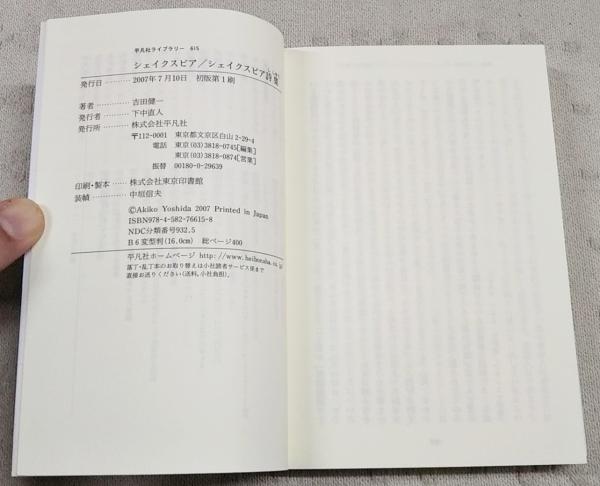 平凡社ライブラリー 615
シェイクスピア／シェイクスピア詩集
発行日………2007年7月10日 初版第1刷
著者…………吉田健一
発行者………下中直人
発行所………株式会社平凡社
〒112-0001 東京都文京区白山2-29-4
電話 東京(03)3818-0745[編集]
東京(03)3818-0874[営業]
振替 00180-0-29639
印刷・製本……株式会社東京印書館
装幀…………中垣信夫
©Akiko Yoshida 2007 Printed in Japan
ISBN978-4-582-76615-8
NDC分類番号932.5
B6変型判(16.0cm) 総ページ400
平凡社ホームページ http://www.heibonsha.co.jp/
落丁・乱丁本のお取り替えは小社読者サービス係まで
直接お送りください(送料、小社負担)。